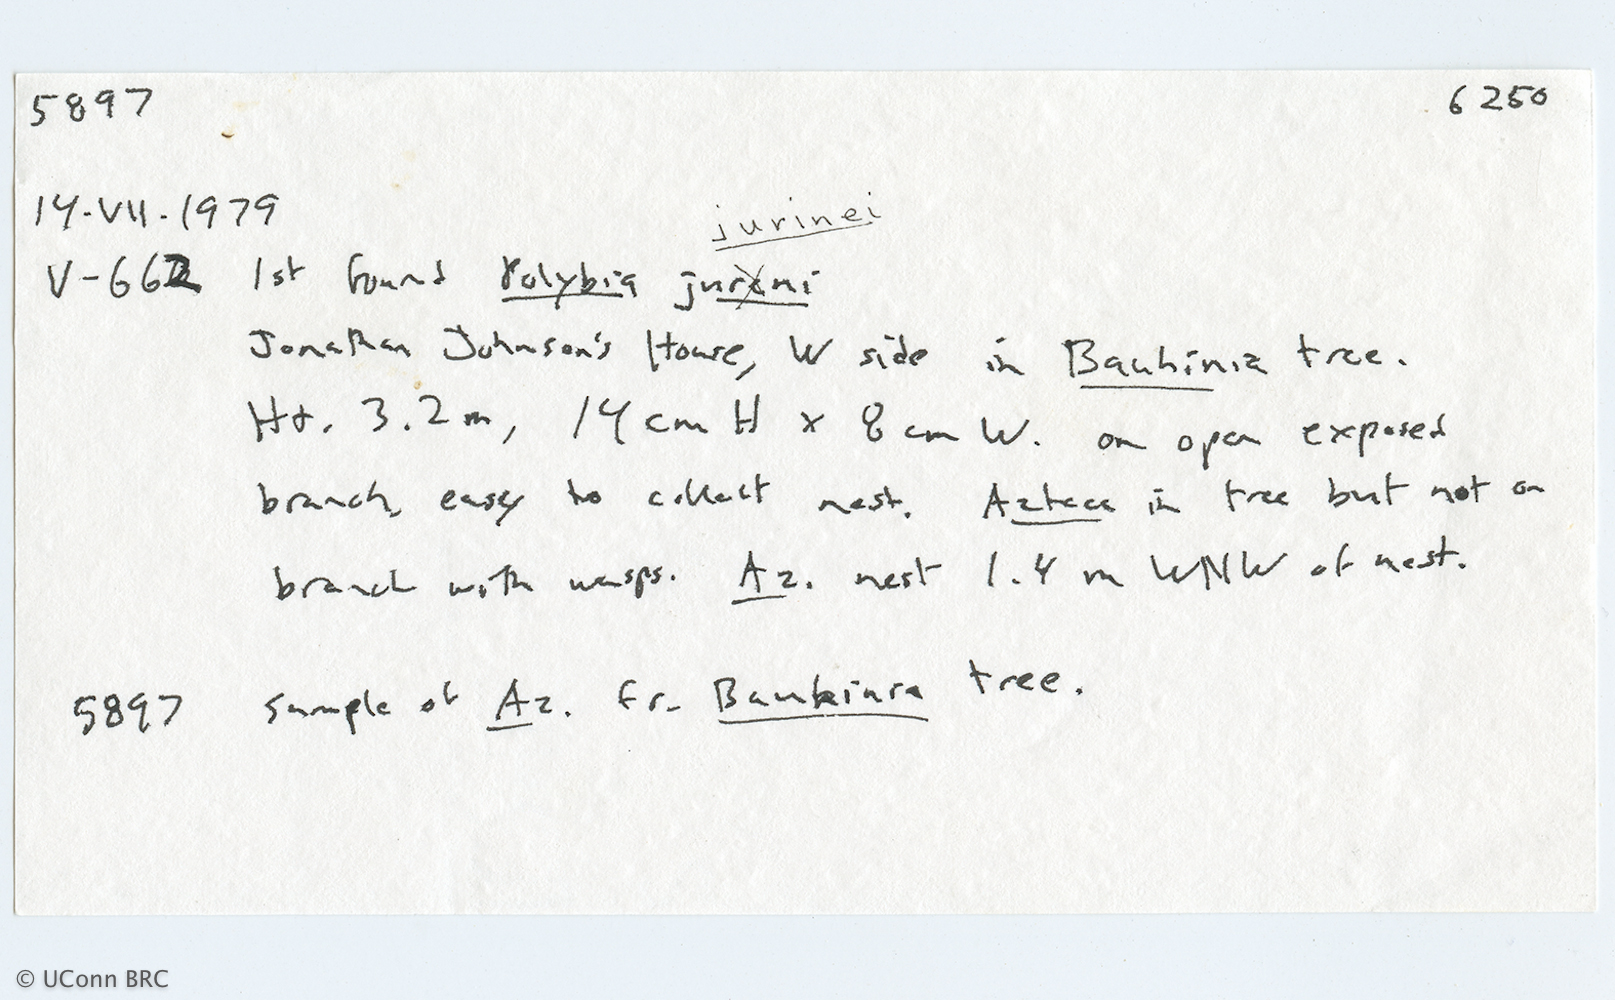 5897 6250
14-VII-1979
jurinei
V-662 1st found Polybia jurini
Jonathan Johnson's House, W side in Bauhinia tree.
Ht. 3.2 m, 14 cm H x 8 cm W. on open exposed
branch, easy to collect nest. Azteca in tree but not on
branch with wasps. Az. nest 1.4 m WNW of nest.
5897 sample of Az. fr. Bauhinia tree.
© UConn BRC